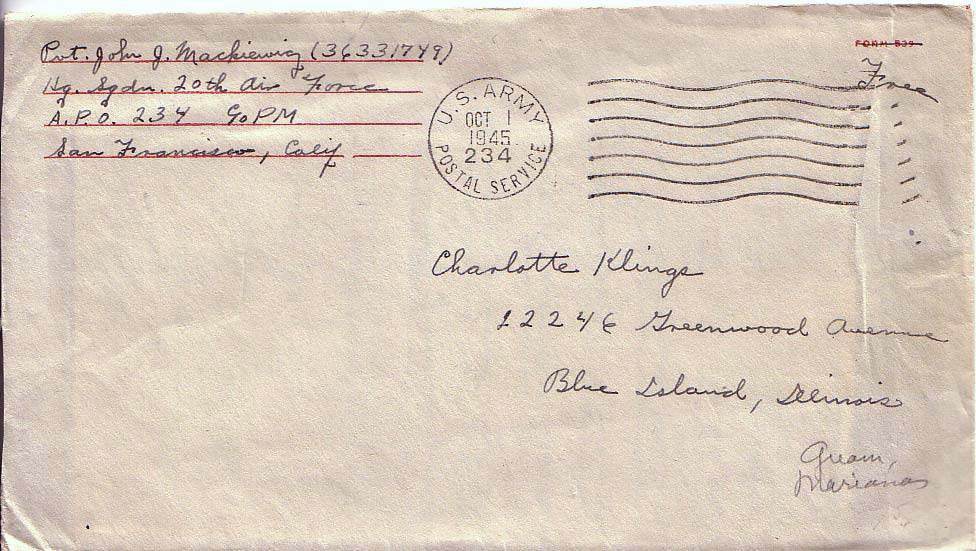 Pvt. John J. Mackiewicz (36331749)
FORM 539
Hq. Sqdn. 20th Air Force
Free
A.P.O. 234 % PM
San Francisco, Calif
U.S. ARMY
OCT 1
1945
234
POSTAL SERVICE
Charlotte Klings
12246 Greenwood Avenue
Blue Island, Illinois
Guam,
Marianas